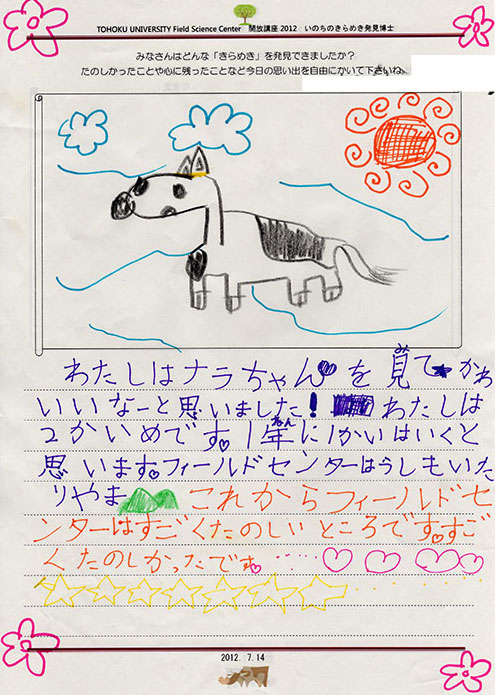 TOHOKU UNIVERSITY Field Science Center 開放講座 2012 いのちのきらめき発見博士
みなさんはどんな「きらめき」を発見できましたか？
たのしかったことや心に残ったことなど今日の思い出を自由にかいて下さいね。
わたしはナラちゃんを見て かわ
いいなーと思いました! わたしは
2かいめです。1年に1かいはいくと
思います。フィールドセンターはうしもいた
りやま これからフィールドセ
ンターはすごくたのしいところです。すご
くたのしかったです。
2012. 7.14